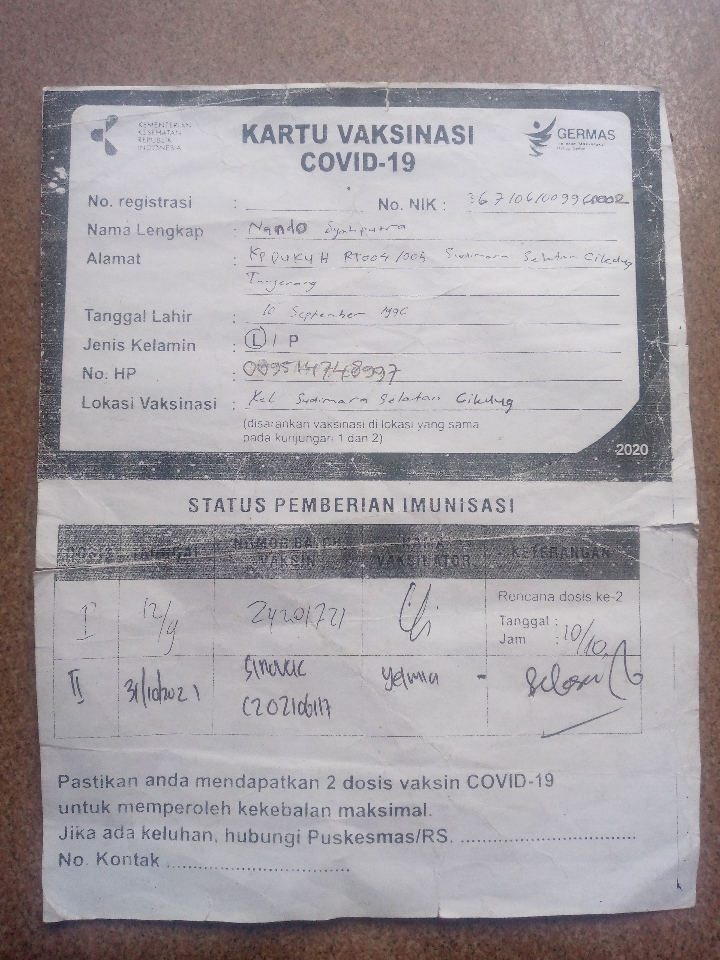 KEMENTERIAN
KESEHATAN
REPUBLIK
INDONESIA
KARTU VAKSINASI
COVID-19
GERMAS
No. registrasi :
No. NIK :
Nama Lengkap : Nando
Alamat : KP DUKUH RT004/004 Sudimara Selatan Ciledug
Tangerang
Tanggal Lahir : 10 September
Jenis Kelamin : L / P
No. HP :
Lokasi Vaksinasi : Kel Sudimara Selatan Ciledug
(disarankan vaksinasi di lokasi yang sama
pada kunjungan 1 dan 2)
2020
STATUS PEMBERIAN IMUNISASI
DOSIS TANGGAL NOMOR BATCH VAKSIN VAKSINATOR KETERANGAN
I 12/9 24201721 Rencana dosis ke-2
Tanggal : 10/10
Jam :
II 31/10/2021 Sinovac
C202106117
Pastikan anda mendapatkan 2 dosis vaksin COVID-19
untuk memperoleh kekebalan maksimal.
Jika ada keluhan, hubungi Puskesmas/RS. ................................
No. Kontak ................................